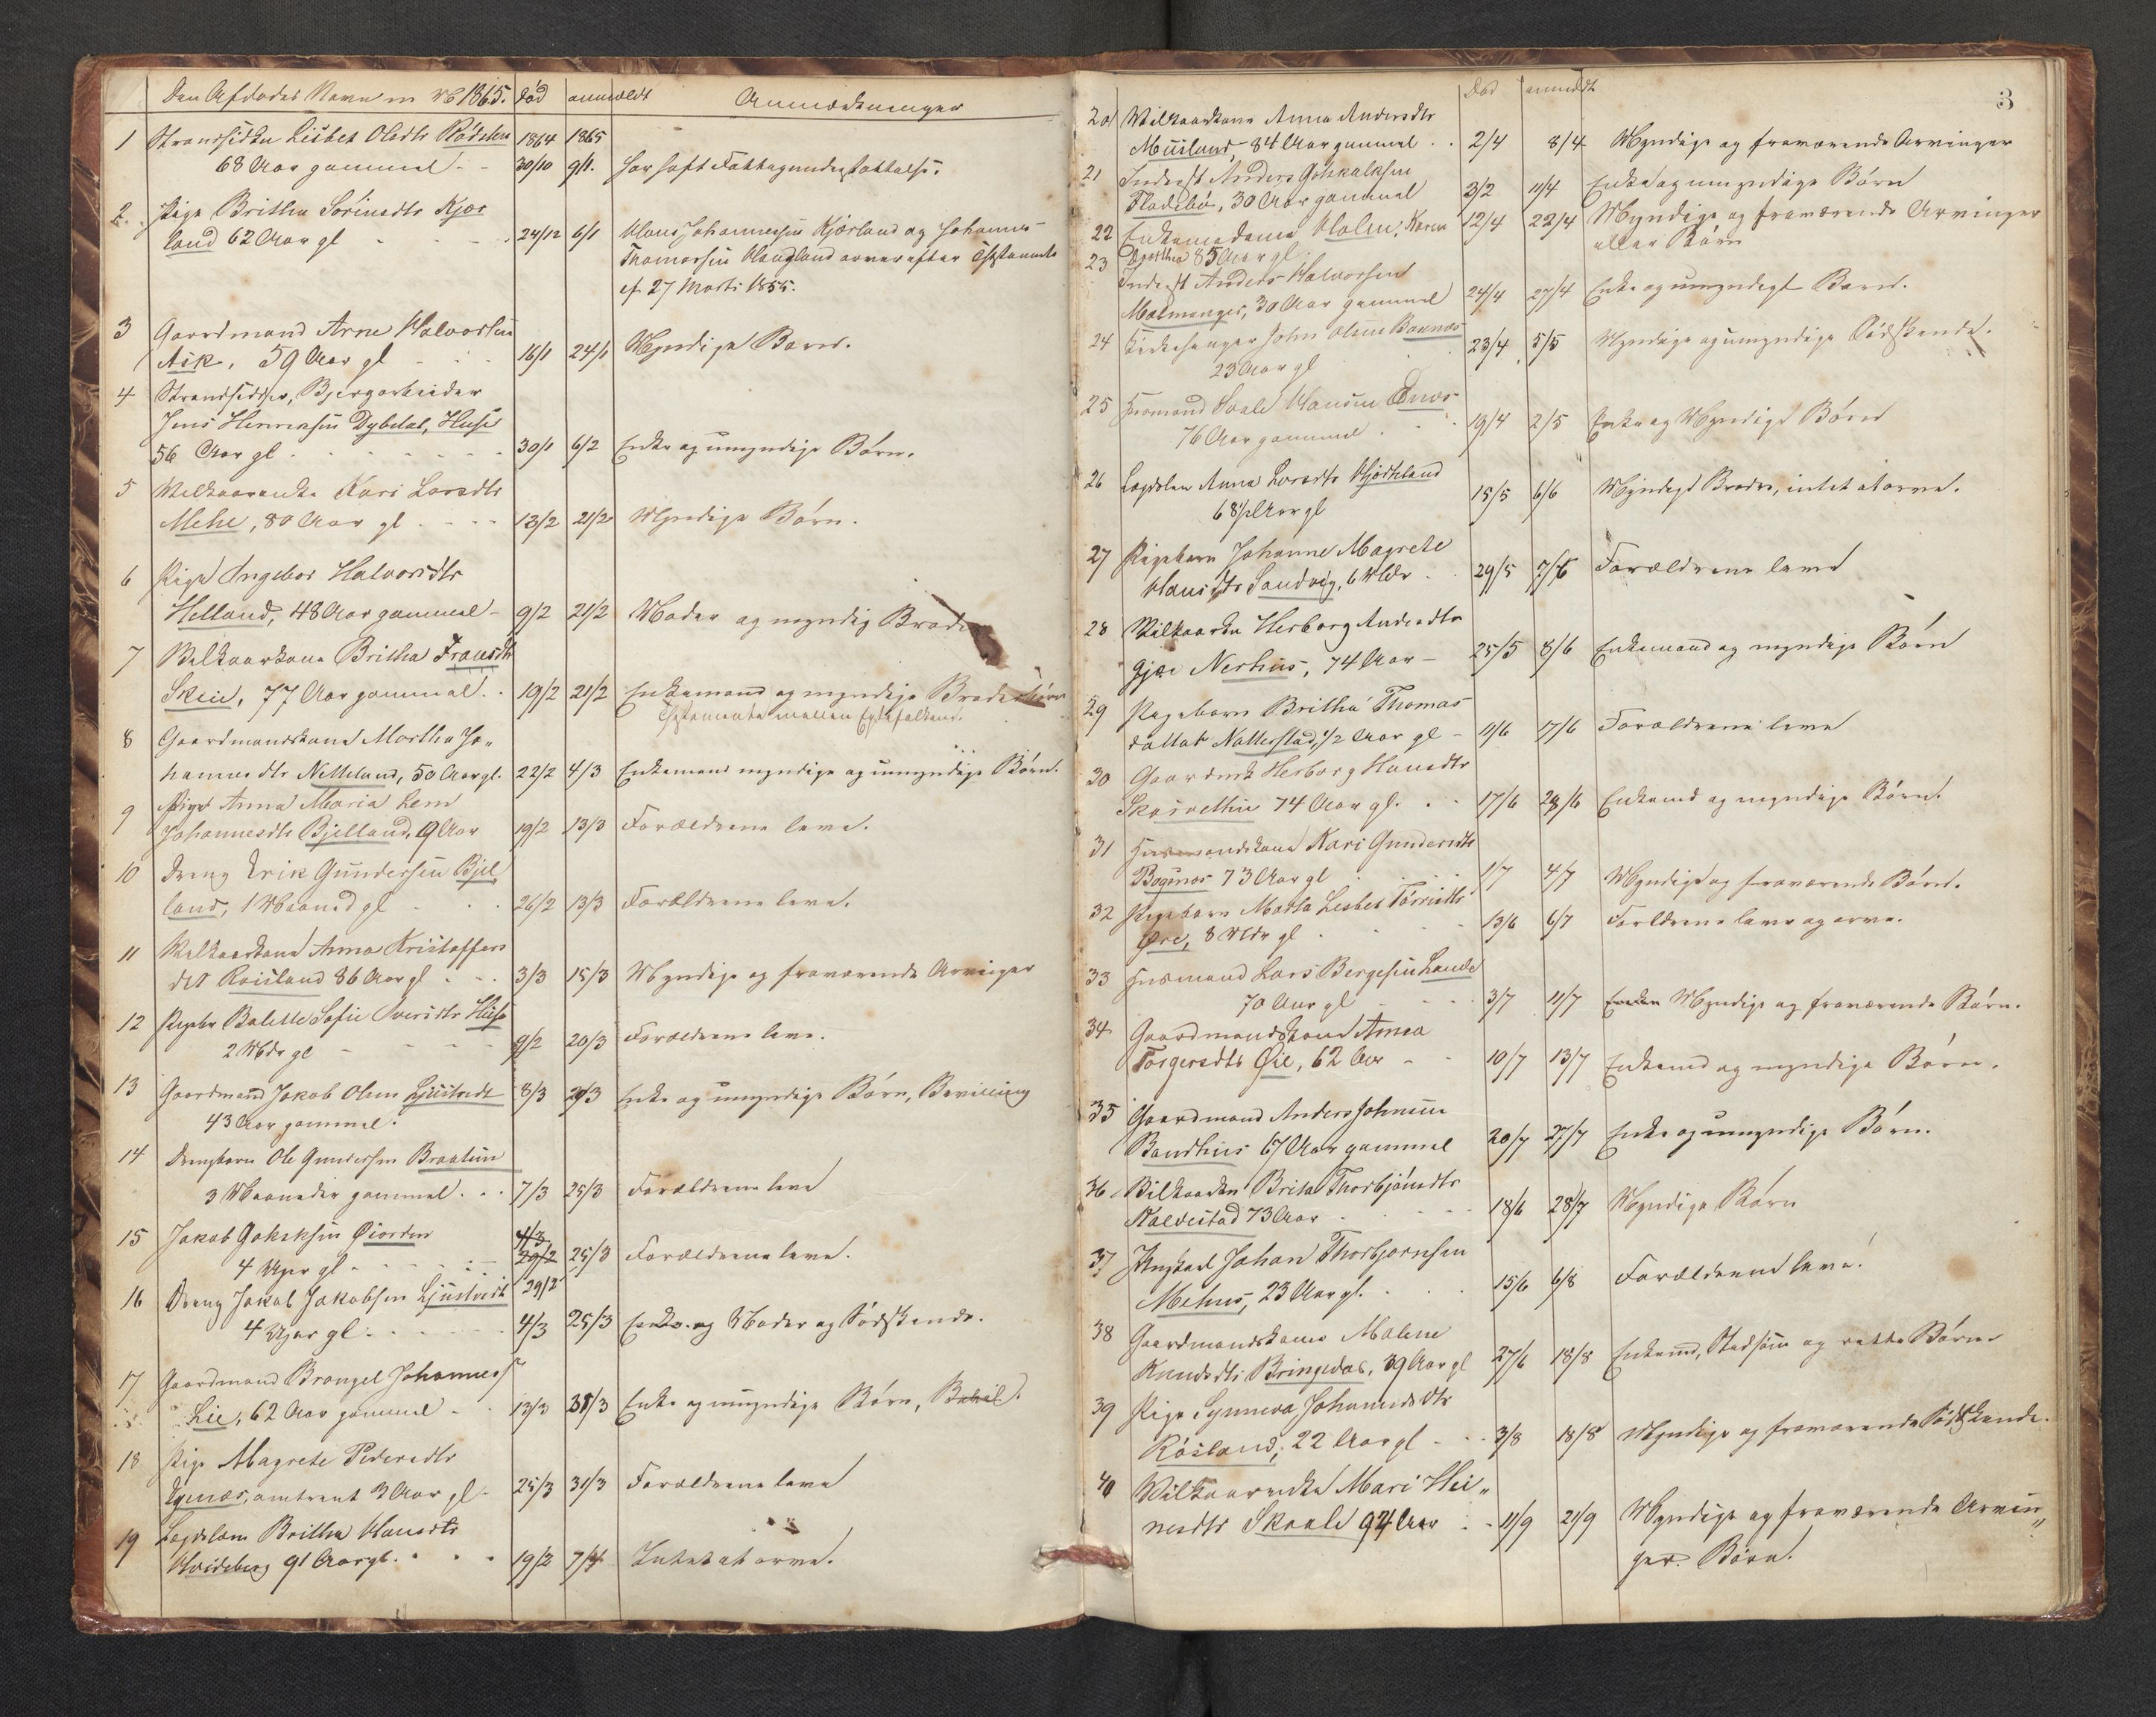 Den Afdødes Navn m 1865. død anmeldt Anmærkninger
1 Strandsidder Lisbet Olsdtr Rødsten 1864 1865
68 Aar gammel 30/10 9/1. har havt Fattigunderstøttelse.
2. Pige Britha Sørinsdtr Kjær
land 62 Aar gl 24/12 6/1 Hans Johannessen Kjærland og Johannes
Thomassen Haugland arver efter Testamente
af 27 Marts 1855.
3 Gaardmand Arne Halvorsen
Ask, 59 Aar gl 16/1 24/1 Myndige Børn.
4 Strandsidder, Bjergarbeider
Jens Henriksen Dybdal, Huse
56 Aar gl 30/1 6/2 Enke og umyndige Børn.
5 Vilkaarenke Kari Larsdtr
Mehe, 80 Aar gl 13/2 21/2 Myndige Børn.
6 Pige Ingebor Halvorsdtr
Helland, 48 Aar gammel 9/2 21/2 Moder og myndig Broder
7 Vilkaarkone Britha Fransdtr
Skeie, 77 Aar gammel 19/2 21/2 Enkemand og myndige Broderbørn
Testamente mellem Egtefolkene.
8 Gaardmandskone Martha Jo„
hannesdtr Netteland, 50 Aar gl. 22/2 4/3 Enkemand myndige og umyndige Børn.
9 Pige Anna Maria Lem
Johannesdtr Bjelland, 9 Aar 19/2 13/3 Forældrene leve.
10 Dreng Erik Gundersen Bjel
land, 1 Maaned gl 26/2 13/3 Forældrene leve.
11 Vilkaarkone Anna Kristoffers
dtr Røisland 86 Aar gl 3/3 15/3 Myndige og fraværende Arvinger
12 Pigebr Balette Sofie Iversdtr Huse
2 Mdr gl 9/2 20/3 Forældrene leve.
13 Gaardmand Jakob Olsen Ljustvedt 8/3 21/3 Enke og umyndige Børn, Bevilling
43 Aar gammel.
14 Drengbarn Ole Gundersen Braatun
3 Maaneder gammel 7/3 25/3 Forældrene leve
15 Jakob Goksksen Øiorden 4/3
4 Uger gl 29/2 25/3 Forældrene leve.
16 Dreng Jakob Jakobsen Ljustvedt 29/2
4 Uger gl 4/3 25/3 Enke og Moder og Sødskende.
17 Gaardmand Brangel Johannes
Lie, 62 Aar gammel 13/3 31/3 Enke og umyndige Børn,
18 Pige Magrete Pedersdtr
Egnæs, omtrent 3 Aar gl 25/3 31/3 Forældrene leve
19 Lægdslem Britha Hansdtr
Hvideberg 91 Aar gl. 19/3 7/4 Intet at arve.
3
Død anmeldt
20 Vilkaarkone Anna Andersdtr
Musland, 84 Aar gammel 2/4 8/4 Myndige og fraværende Arvinger
21 Inderst Anders Gotskalksen
Fladebø, 30 Aar gammel 3/2 11/4 Enke og umyndige Børn
22 Enkemadame Holm, Karen 12/4 22/4 Myndige og fraværende Arvinger
Dorthea 85 Aar gl. eller Børn
23 Inderst Anders Halvorsen
Malmanger, 30 Aar gammel 24/4 27/4 Enke og umyndigt Barn.
24 Kirkesanger John Olsen Baunæs 23/4 5/5 Myndige og umyndige Sødskende.
23 Aar gl
25 Husmand Sjale Hansen Ænæs
76 Aar gammel 19/4 2/5 Enke og Myndige Børn
26 Lægdslem Anna Larsdtr Hjørteland 15/5 6/6 Myndige Brødre, intet at arve.
68½ Aar gl
27 Pigebarn Johanne Magrete
Hansdtr Sandvig, 6 Mdr 29/5 7/6 Forældrene leve
28 Vilkaarkn Herborg Andersdtr
Gjæe Nerhus, 74 Aar 25/5 8/6 Enkemand og myndige Børn
29 Pigebarn Britha Thomas
datter Natterstad, ½ Aar gl 11/6 17/6 Forældrene leve
30 Gaardmk Herborg Hansdtr
Skarvetten 74 Aar gl. 17/6 28/6 Enkemd og myndige Børn.
31 Husmandskone Kari Gundersdtr
Bogsnæs 73 Aar gl 1/7 4/7 Myndige og fraværende Børn.
32 Pigebarn Marta Lisbet Tørrisdtr
Øre, 8 Mdr gl 13/6 6/7 Forældrene leve og arve.
33 Husmand Lars Bergesen Lande
70 Aar gl 3/7 11/7 Enke Myndige og fraværende Børn.
34 Gaardmandskone Anna
Torgersdtr Øie, 62 Aar 10/7 13/7 Enkemd og myndige Børn.
35 Gaardmand Anders Johnsen
Bondhus 67 Aar gammel 20/7 27/7 Enke og umyndige Børn.
36 Vilkaarkn Brita Thorbjønsdtr
Kalvestad 73 Aar 18/6 28/7 Myndige Børn
37 Ungkarl Johan Thorbjørnsen
Mehus, 23 Aar gl. 15/6 6/8 Forældrene leve.
38 Gaardmandskone Malene
Knudsdtr Bringedal, 39 Aar gl 27/6 18/8 Enkemd, Stedsøn og rette Børn
39 Pige Synneva Johannesdtr
Røsland, 22 Aar gl 3/8 18/8 Myndige og fraværende Sødskende.
40 Vilkaarenke Mari Hei„
nesdtr Skaale 94 Aar 11/9 21/9 Myndige og fraværende Arvin„
ger. Børn.